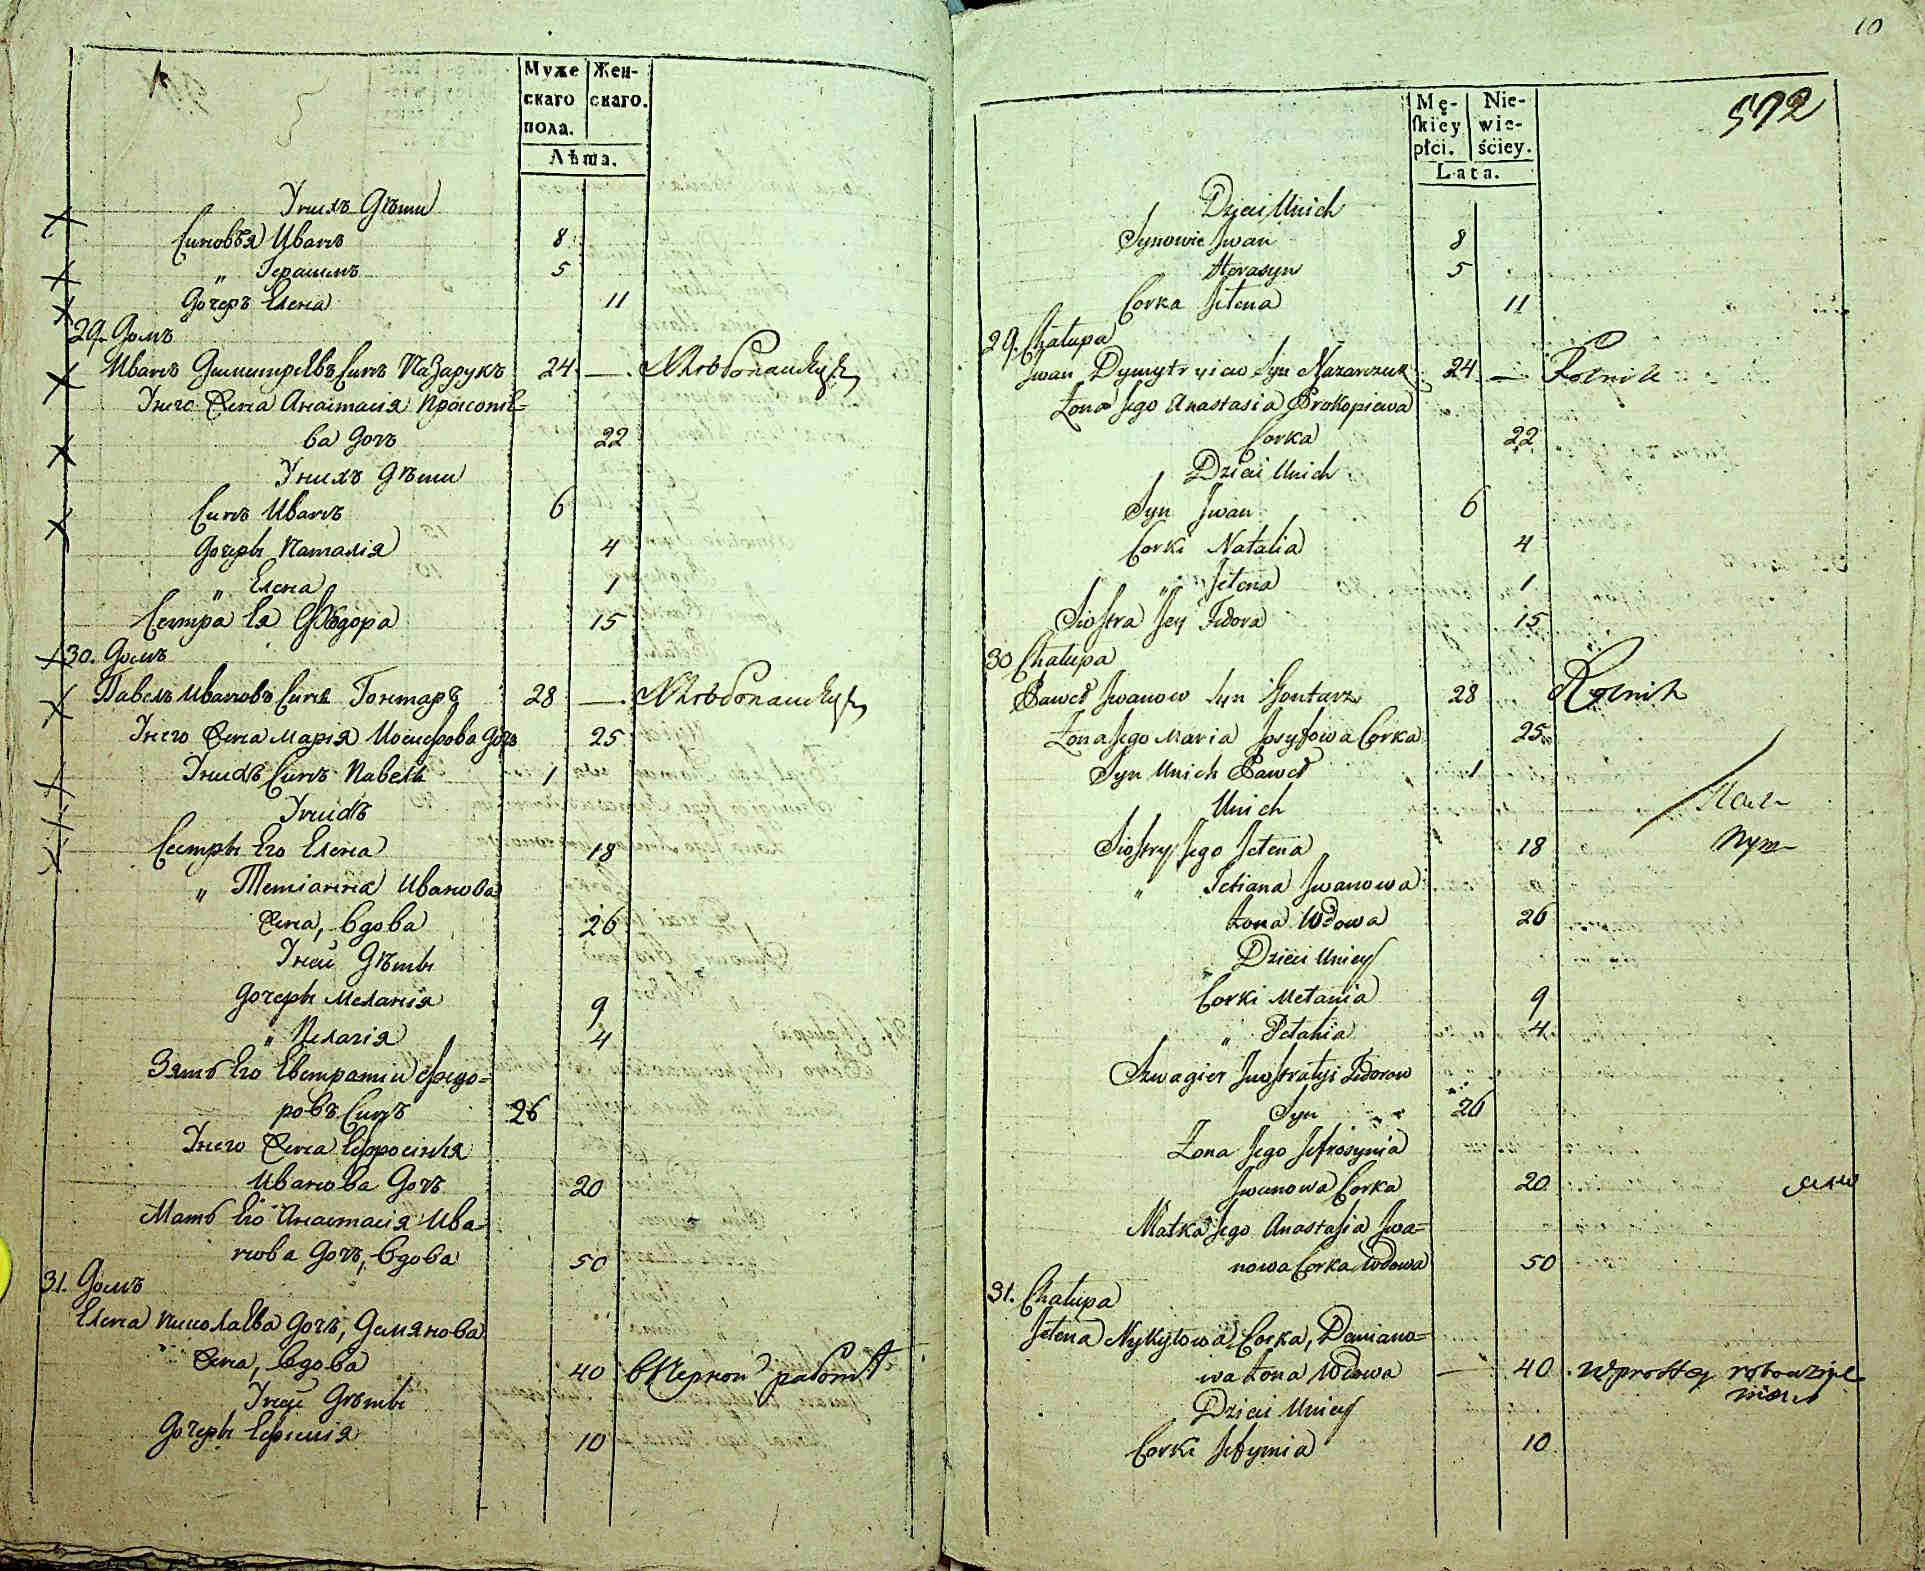 Муже
скаго
пола.
Жен-
скаго.
Лѣта.
Унихъ Дѣти
Синовья Иванъ 8
" Герасимъ 5
Дочеръ Елена 11
29. Домъ
Иванъ Димитрѣевъ Синъ Назарукъ 24 — Хлѣбопашецъ
Унего Жена Анастасія Прокопіе-
ва Дочъ 22
Унихъ Дѣти
Синъ Иванъ 6
Дочеры Наталія 4
" Елена 1
Сестра Ея Ѳедора 15
30. Домъ
Павелъ Ивановъ Синъ Гонтаръ 28 — Хлѣбопашецъ
Унего Жена Марія Иосифова Дочъ 25
Унихъ Синъ Павелъ 1
Унихъ
Сестры Его Елена 18
" Тетіанна Иванова
Жена, Вдова 26
Уней Дѣты
Дочеры Меланія 9
" Пелагія 4
Зять Его Евстратій Федо-
ровъ Синъ 26
Унего Жена Ефросинія
Иванова Дочъ 20
Мать Его Анастасія Ива-
нова Дочъ, Вдова 50
31. Домъ
Елена Николаева Дочъ, Демянова
Жена, Вдова 40 вЧерной работѣ
Уней Дѣты
Дочеры Ефимія 10
10
572
Mę-
skiey
płci.
Nie-
wie-
ściey.
Lata.
Dzieci Unich
Synowie Jwan 8
Herasym 5
Corka Jelena 11
29. Chałupa
Jwan Dymytryiow Syn Nazarczuk 24 — Rolnik
Żona Jego Anastasia Prokopiewa
Corka 22
Dzieci Unich
Syn Jwan 6
Corki Natalia 4
" Jelena 1
Siostra Jey Fedora 15
30 Chałupa
Paweł Jwanow Syn Gontarz 28 Rolnik
Żona Jego Maria Josyfowa Corka 25
Syn Unich Paweł 1
Unich
Siostry Jego Jelena 18
" Tetiana Jwanowa
Żona Wdowa 26
Dzieci Uniey
Corki Melania 9
" Pelahia 4
Szwagier Jewstratyi Fedorow
Syn 26
Żona Jego Jefrosynia
Jwanowa Corka 20
Matka Jego Anastasia Jwa=
nowa Corka Wdowa 50
31. Chałupa
Jelena Nykytowa Corka, Demiano=
wa Żona Wdowa — 40 wprostey robocizie
Dzieci Uniey
Corki Jefymia 10